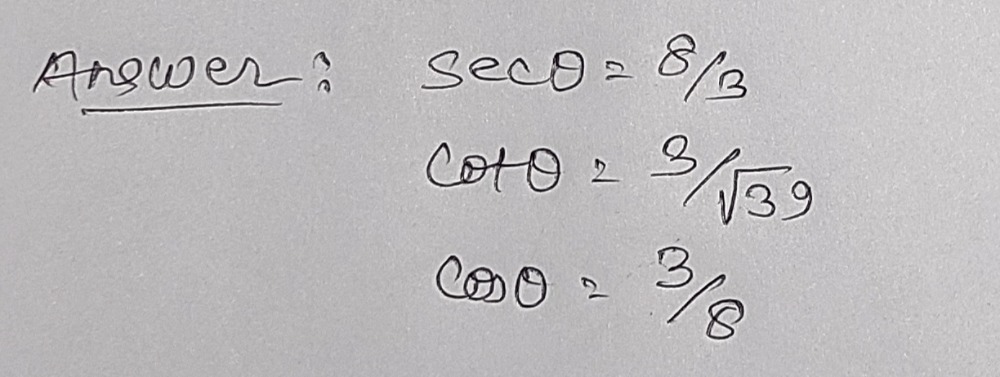 Answer : secθ = 8/3
cotθ = 3/√39
cosθ = 3/8